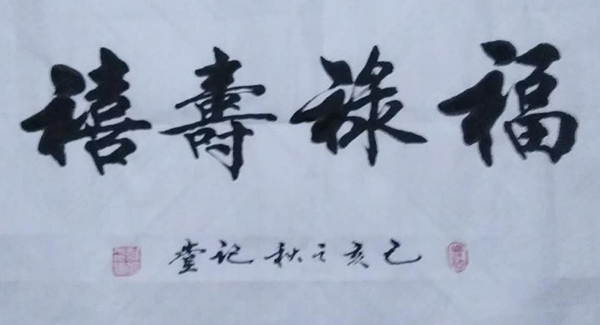 福祿壽禧
己亥之秋記堂